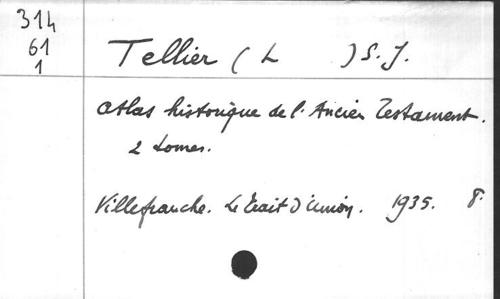 314
61
1
Tellier ( L ) S. J.
Atlas historique de l'Ancien Testament.
2 tomes.
Villefranche. Le Trait d'Union. 1935. 8°